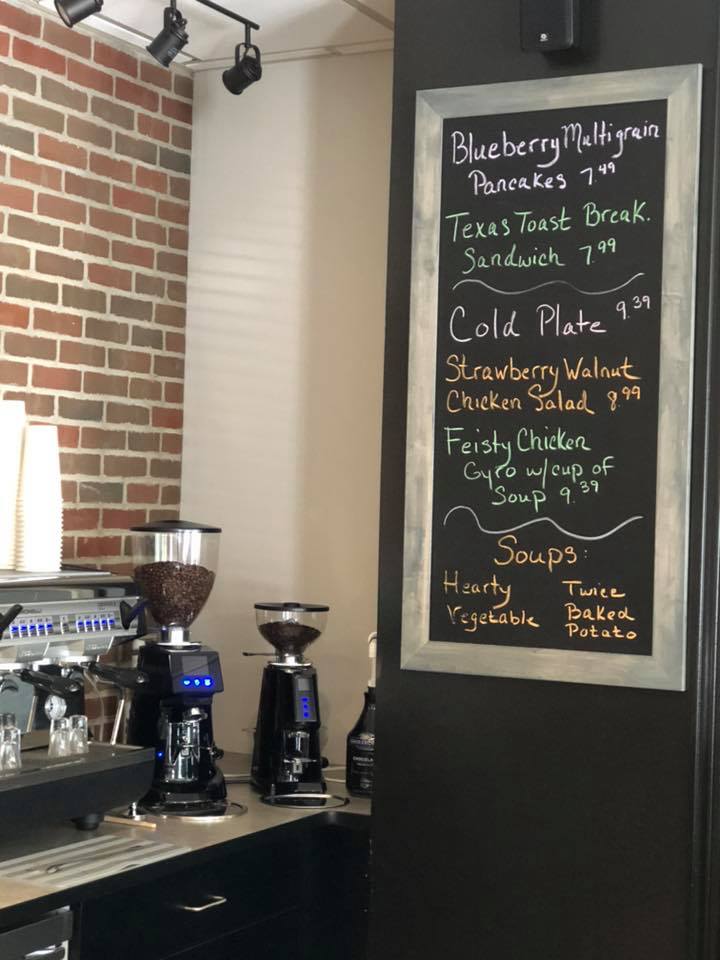 Blueberry Multigrain
Pancakes 7.49
Texas Toast Break.
Sandwich 7.99
Cold Plate 9.39
Strawberry Walnut
Chicken Salad 8.99
Feisty Chicken
Gyro w/cup of
Soup 9.39
Soups:
Hearty
Vegetable
Twice
Baked
Potato